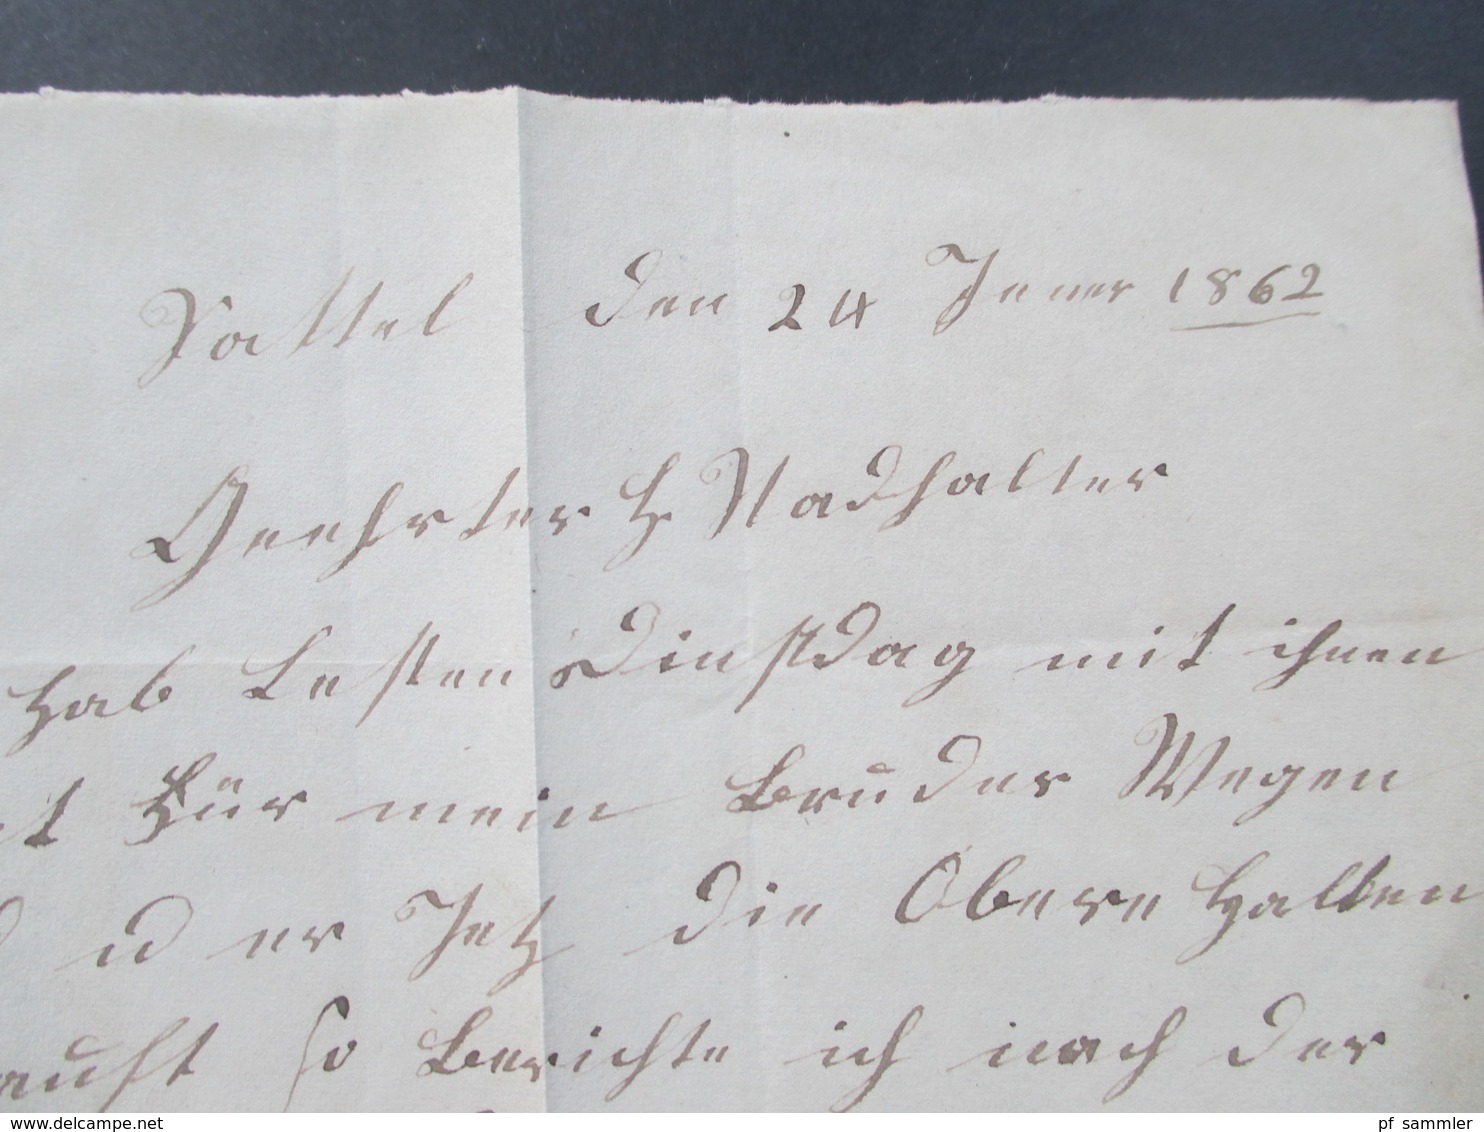 Sattel den 24 Jener 1862
Geehrter H Stadhalter
Hab Lesten Dinstdag mit ihnen
für mein Bruder Wegen
er Jetz die Obere Halten
so Berichte ich nach der
www.delcampe.net
pf_sammler